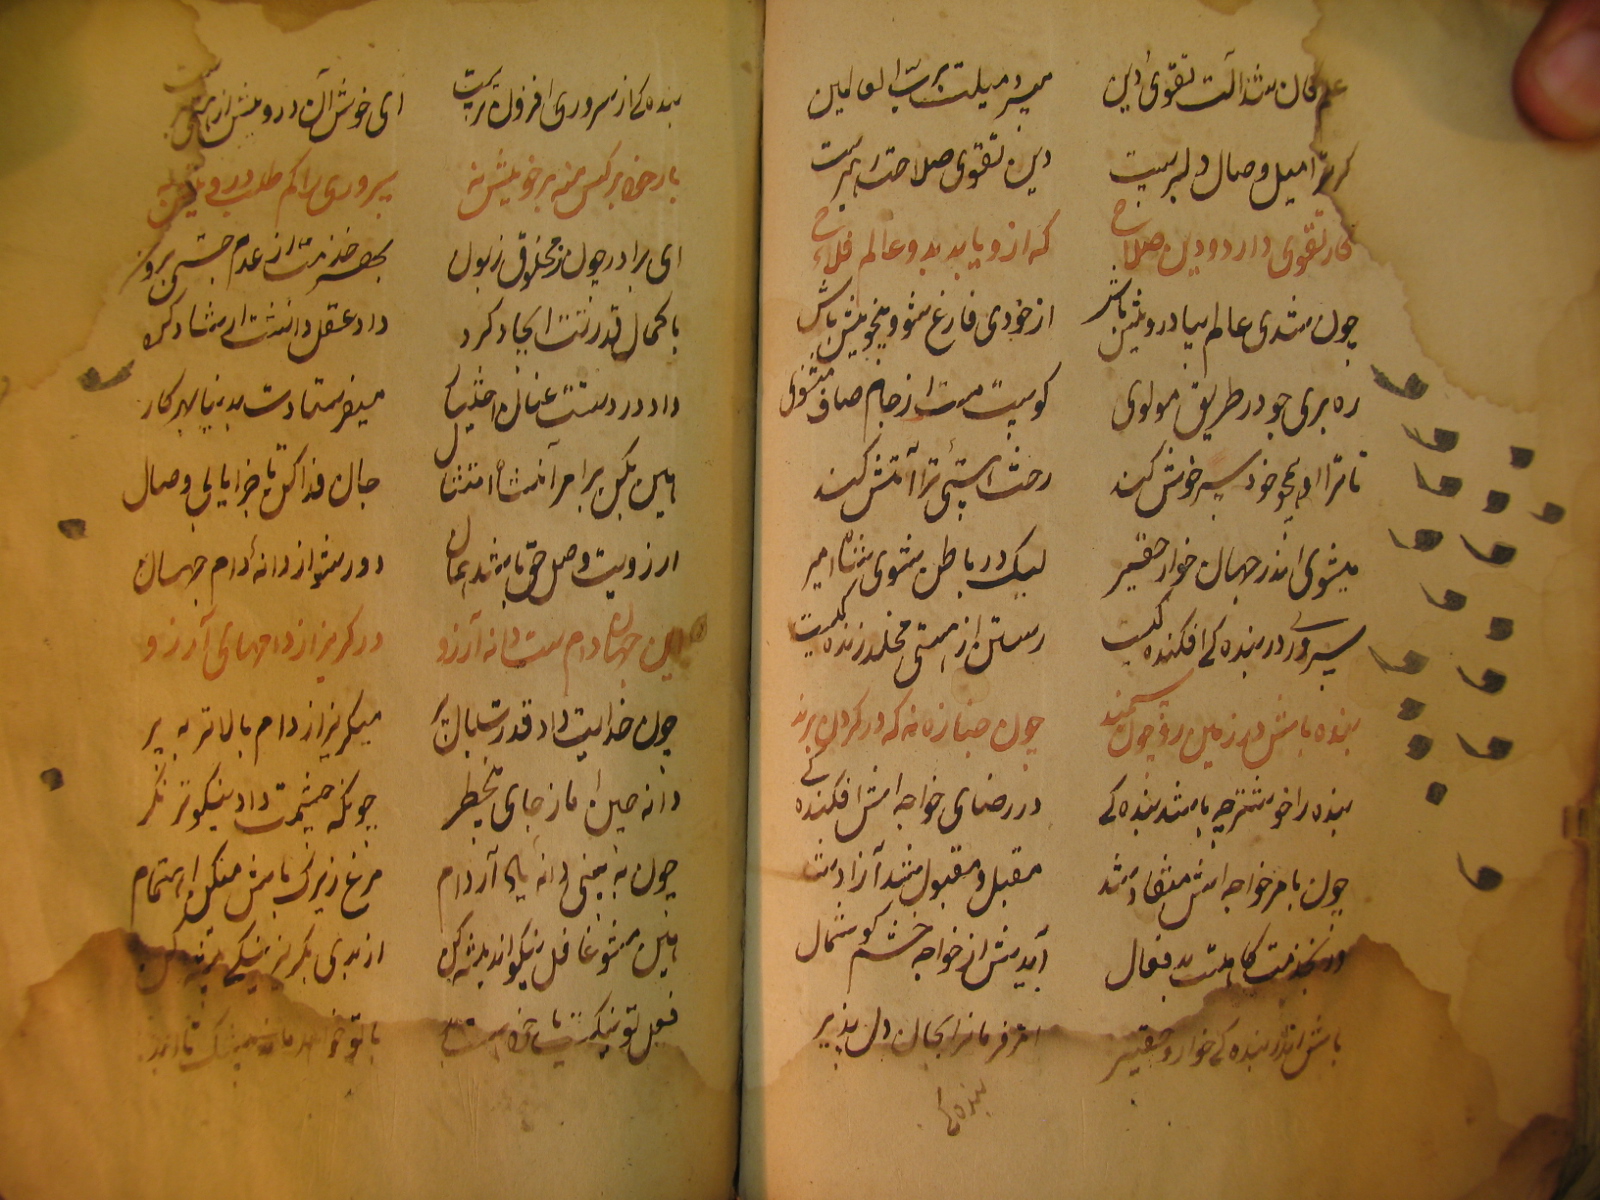 علم کان شد آلت تقوی و دین میبرد میلت برب العالمین
کر ترا میل وصال دلبریست دین و تقوی و صلاحت رهبریست
کار تقوی دارد و دین و صلاح که ازو یابد بدو عالم فلاح
چون شدی عالم بیا درویش باش از خودی فارغ شو و بیخویش باش
ره بری جو در طریق مولوی کوست مست از جام صاف مثنوی
تا ترا او همچو خود سرخوش کند رخت هستی ترا آتش کند
میشوی اندر جهان خوار و حقیر لیک در باطن شوی شاه و امیر
سروری در بنده کی افکنده کیست رستن از هستی مخلد زنده کیست
بنده باش و در زمین رو چون سمند چون جنازه نه که در کردن برند
بنده را خوشتر چه باشد بنده کی در رضای خواجه اش افکنده کی
چون بامر خواجه اش منقاد شد مقبل و مقبول شد آزاد شد
ور بخدمت کاهلست و بد فعال آیدش از خواجه خشم و کوشمال
باش اندر بنده کی خوار و حقیر امر فرمانرا بجان دل پذیر
بنده کی
بنده کی از سروری افزون ترست ای خوش آن درویش
بار خود بر کس منه بر خویش نه سروری را کم طلب درویش به
ای برادر چون ز مخلوقی زبون بهر خدمت از عدم جستی برون
با کمال قدرتت ایجاد کرد داد عقل و دانشت ای شاد کرد
داد در دستت عنان اختیار میفرستادت بدنیا بهر کار
هین بکن برامر آنشه امتثال جان فدا کن تا جزا یابی وصال
ارزویت وصل حق باشد عیان دور شو از دانهٔ دام جهان
این جهان دام ست و دانه آرزو در کریز از دامهای آرزو
چون خدایت داد قدرت بال و پر میکریز از دام بالاتر بپر
دانه چین اما ز جای بی خطر چونکه چشمت داد نیکوتر نکر
چون نه بینی دانه یاد آر دام مرغ زیرک باش میکن اهتمام
هین مشو غافل نیکو اندیشه کن از بدی بکریز نیکی پیشه کن
فعل تو نیکست یا خود هست بد با تو خواهد ماند بیشک تا ابد